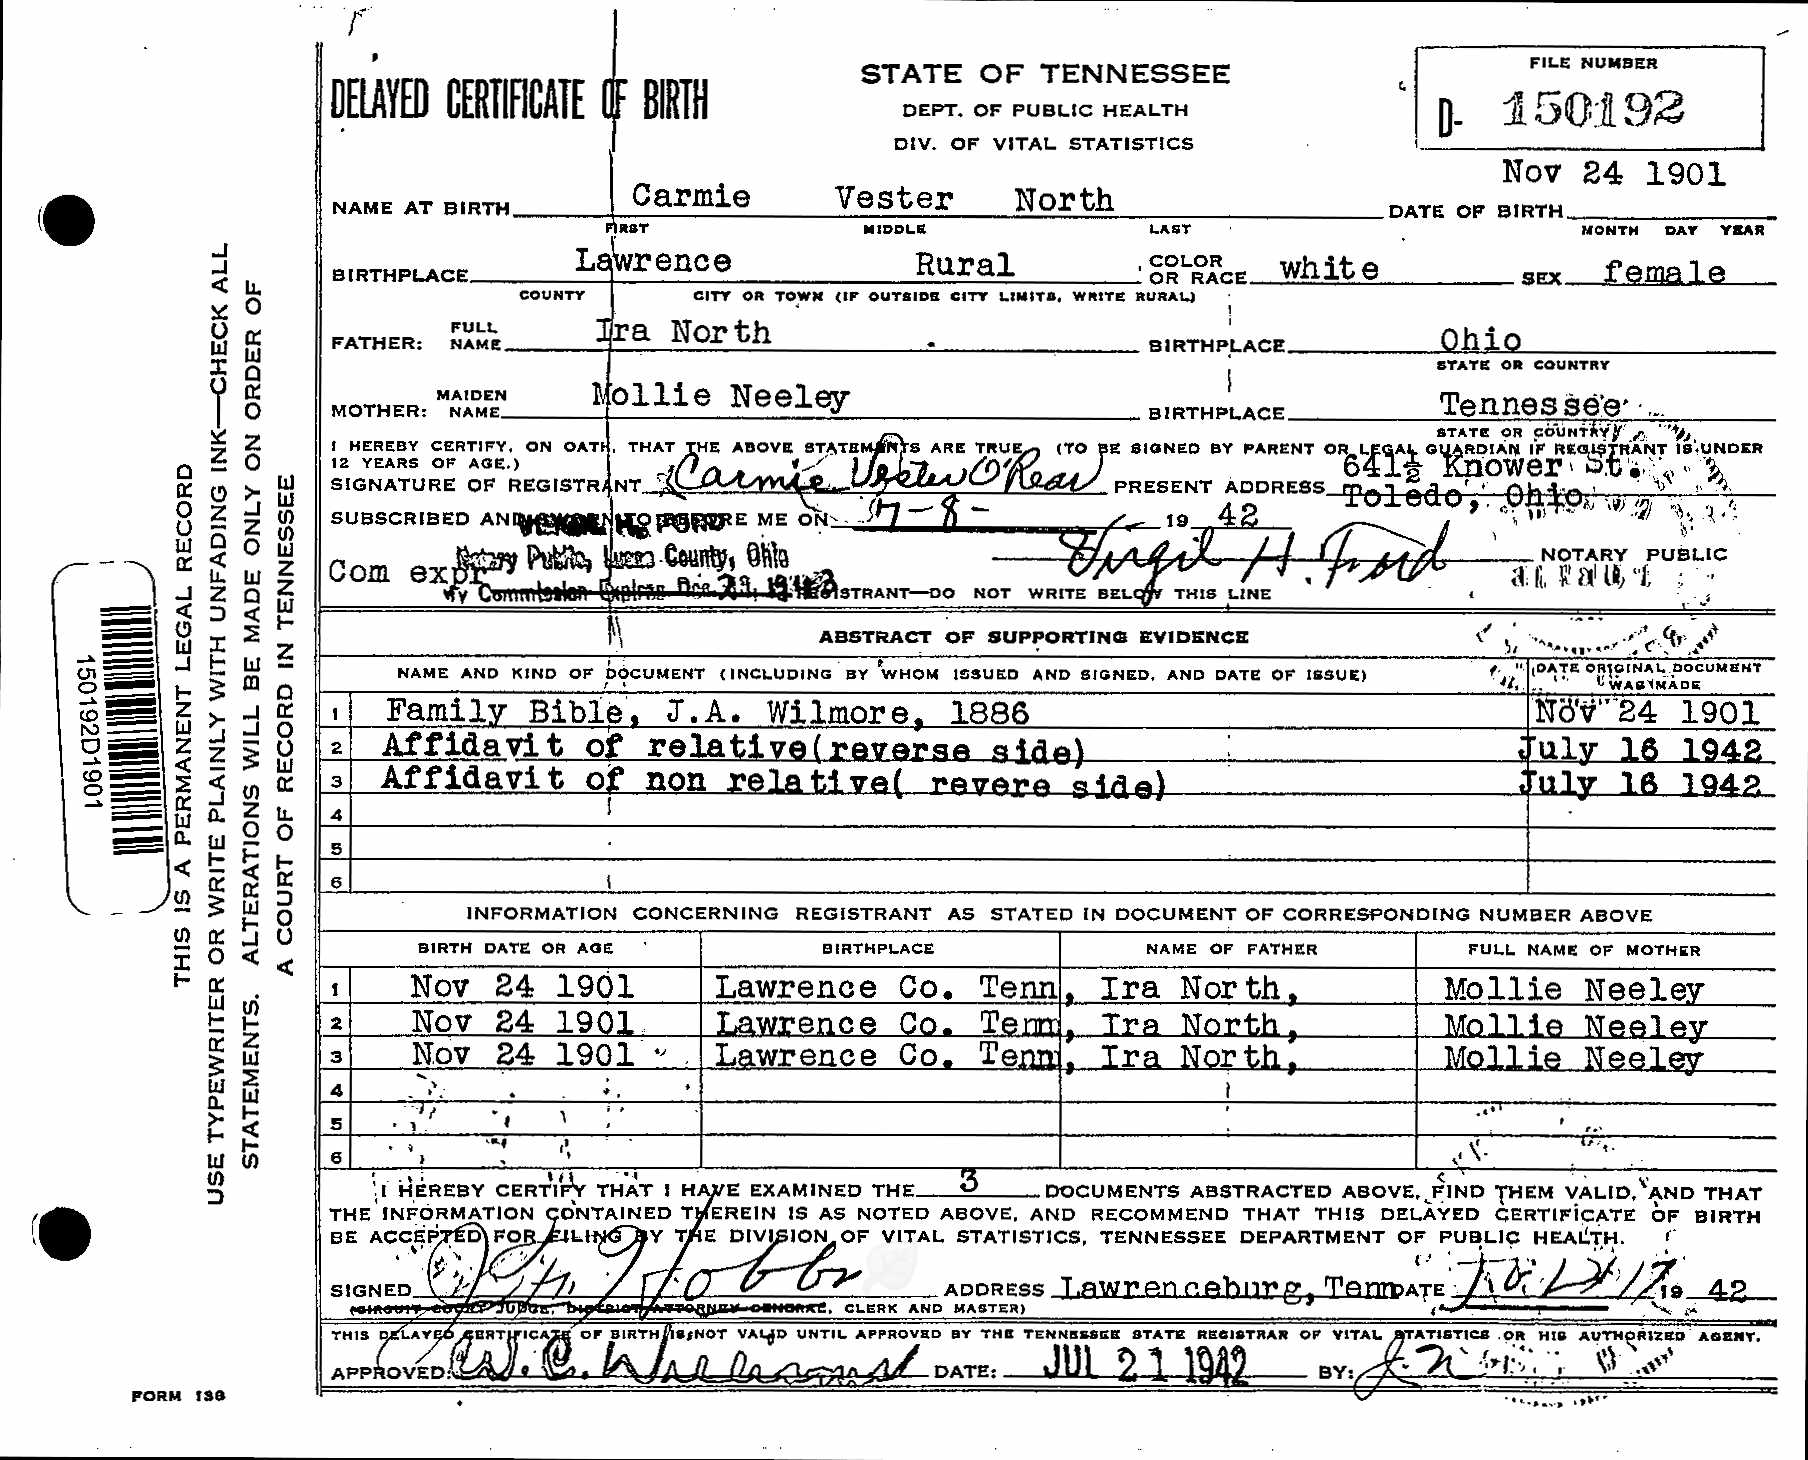 DELAYED CERTIFICATE OF BIRTH
STATE OF TENNESSEE
DEPT. OF PUBLIC HEALTH
DIV. OF VITAL STATISTICS
FILE NUMBER
D- 150192
Nov 24 1901
NAME AT BIRTH Carmie Vester North DATE OF BIRTH
FIRST MIDDLE LAST MONTH DAY YEAR
BIRTHPLACE Lawrence Rural COLOR OR RACE white SEX female
COUNTY CITY OR TOWN (IF OUTSIDE CITY LIMITS, WRITE RURAL)
FATHER: FULL NAME Ira North BIRTHPLACE Ohio
STATE OR COUNTRY
MOTHER: MAIDEN NAME Mollie Neeley BIRTHPLACE Tennessee
STATE OR COUNTRY
I HEREBY CERTIFY, ON OATH, THAT THE ABOVE STATEMENTS ARE TRUE (TO BE SIGNED BY PARENT OR LEGAL GUARDIAN IF REGISTRANT IS UNDER
12 YEARS OF AGE.)
SIGNATURE OF REGISTRANT Carmie Vester O'Rear PRESENT ADDRESS 641½ Knower St. Toledo, Ohio
SUBSCRIBED AND TO BEFORE ME ON 7-8- 19 42
Virgil H. Ford NOTARY PUBLIC
Com expr
Notary Public, Lucas County, Ohio
My Commission Expires Dec. 23, 1943
REGISTRANT—DO NOT WRITE BELOW THIS LINE
ABSTRACT OF SUPPORTING EVIDENCE
NAME AND KIND OF DOCUMENT (INCLUDING BY WHOM ISSUED AND SIGNED, AND DATE OF ISSUE) DATE ORIGINAL DOCUMENT WAS MADE
1 Family Bible, J.A. Wilmore, 1886 Nov 24 1901
2 Affidavit of relative(reverse side) July 16 1942
3 Affidavit of non relative( revere side) July 16 1942
4
5
6
INFORMATION CONCERNING REGISTRANT AS STATED IN DOCUMENT OF CORRESPONDING NUMBER ABOVE
BIRTH DATE OR AGE BIRTHPLACE NAME OF FATHER FULL NAME OF MOTHER
1 Nov 24 1901 Lawrence Co. Tenn, Ira North, Mollie Neeley
2 Nov 24 1901 Lawrence Co. Tenn, Ira North, Mollie Neeley
3 Nov 24 1901 Lawrence Co. Tenn, Ira North, Mollie Neeley
4
5
6
I HEREBY CERTIFY THAT I HAVE EXAMINED THE 3 DOCUMENTS ABSTRACTED ABOVE, FIND THEM VALID, AND THAT
THE INFORMATION CONTAINED THEREIN IS AS NOTED ABOVE, AND RECOMMEND THAT THIS DELAYED CERTIFICATE OF BIRTH
BE ACCEPTED FOR FILING BY THE DIVISION OF VITAL STATISTICS, TENNESSEE DEPARTMENT OF PUBLIC HEALTH.
SIGNED Hobbs ADDRESS Lawrenceburg, Tenn DATE 17 19 42
(CIRCUIT COURT JUDGE, DISTRICT ATTORNEY GENERAL, CLERK AND MASTER)
THIS DELAYED CERTIFICATE OF BIRTH IS NOT VALID UNTIL APPROVED BY THE TENNESSEE STATE REGISTRAR OF VITAL STATISTICS OR HIS AUTHORIZED AGENT.
APPROVED: W. C. Williams DATE: JUL 21 1942 BY:
FORM 136
THIS IS A PERMANENT LEGAL RECORD
USE TYPEWRITER OR WRITE PLAINLY WITH UNFADING INK—CHECK ALL
STATEMENTS. ALTERATIONS WILL BE MADE ONLY ON ORDER OF
A COURT OF RECORD IN TENNESSEE
150192D1901